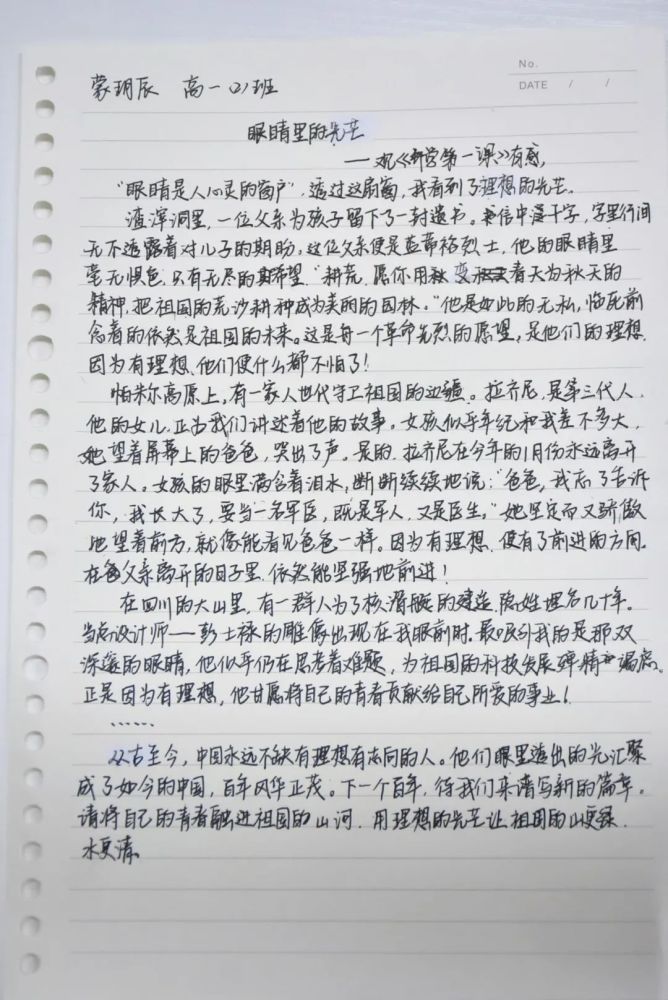 No.
DATE / /
蒙玥辰 高一(2)班
眼睛里的光芒
——观《开学第一课》有感
“眼睛是人心灵的窗户”，透过这扇窗，我看到了理想的光芒。
渣滓洞里，一位父亲为孩子留下了一封遗书。书信中满千字，字里行间
无不透露着对儿子的期盼，这位父亲便是蓝蒂裕烈士，他的眼睛里
毫无惧色，只有无尽的期望“耕荒，愿你用 变 天为秋天的
精神，把祖国的荒沙耕种成为美丽的园林。”他是如此的无私，临死前
念着的依然是祖国的未来。这是每一个革命先烈的愿望，是他们的理想，
因为有理想，他们便什么都不怕了！
帕米尔高原上，有一家人世代守卫祖国的边疆。拉齐尼，是第三代人，
他的女儿正为我们讲述着他的故事。女孩似乎年纪和我差不多大，
她望着屏幕上的爸爸，哭出了声。是的，拉齐尼在今年的1月份永远离开
了家人。女孩的眼里满含着泪水，断断续续地说：“爸爸，我忘了告诉
你，我长大了，要当一名军医，既是军人，又是医生。”她坚定而又骄傲
地望着前方，就像能看见爸爸一样。因为有理想，便有了前进的方向。
在父亲离开的日子里，依然能坚强地前进！
在四川的大山里，有一群人为了核潜艇的建造，隐姓埋名几十年。
当总设计师——彭士禄的雕像出现在我眼前时，最吸引我的是那双
深邃的眼睛，他似乎仍在思考着难题，为祖国的科技发展殚精竭虑。
正是因为有理想，他甘愿将自己的青春贡献给自己所爱的事业！
……
从古至今，中国永远不缺有理想有志向的人。他们眼里透出的光汇聚
成了如今的中国，百年风华正茂。下一个百年，待我们来谱写新的篇章。
请将自己的青春融进祖国的山河，用理想的光芒让祖国的山更绿，
水更清。